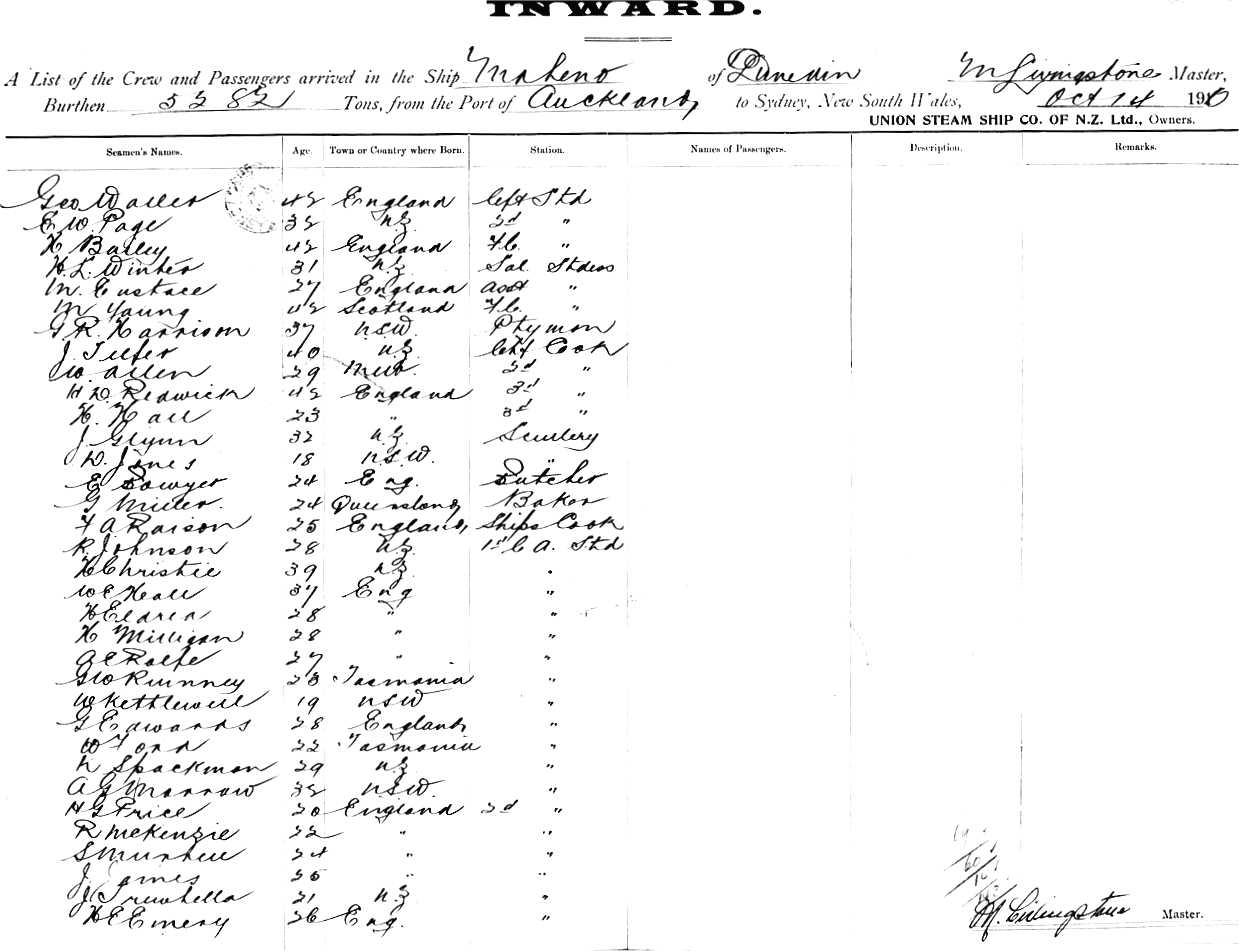 INWARD.
A List of the Crew and Passengers arrived in the Ship Maheno of Dunedin M Livingstone Master,
Burthen 5282 Tons, from the Port of Auckland to Sydney, New South Wales, Oct 14 1910
UNION STEAM SHIP CO. OF N.Z. Ltd., Owners.
Seamen's Names. Age. Town or Country where Born. Station. Names of Passengers. Description. Remarks.
Geo Waller 42 England Std
E. W. Page 32 NZ 2d "
H Bailey 42 England F.C. "
H. L. Winter 31 NZ Sal. Stdess
M. Eustace 27 England Asst "
M Young 42 Scotland F.C. "
G R. Harrison 37 NSW Ptymon
J. 40 NZ Chf Cook
W. Allen 29 2d "
H D. Redwick 42 England 3d "
H. Hall 23 " 3d "
J. Glynn 32 NZ Scullery
D. Jones 18 N.S.W. "
E Sawyer 24 Eng. Butcher
G Miller. 24 Queensland Baker
F A. Raison 25 England Ships Cook
R. Johnson 28 NZ 1st C A. Std
H Christie 39 NZ "
W E Hall 37 Eng "
H 28 " "
H Milligan 28 " "
A E Rolfe 27 " "
G W 23 Tasmania "
W Kettlewell 19 NSW "
G Edwards 28 England "
W Ford 22 Tasmania "
N Spackman 29 NZ "
A G Morrow 32 NSW. "
H G Price 20 England 2d "
R McKenzie 22 " "
S 24 " "
J. James 25 " "
J Trewhella 21 N.Z "
H E Emery 26 Eng. "
M. Livingstone Master.